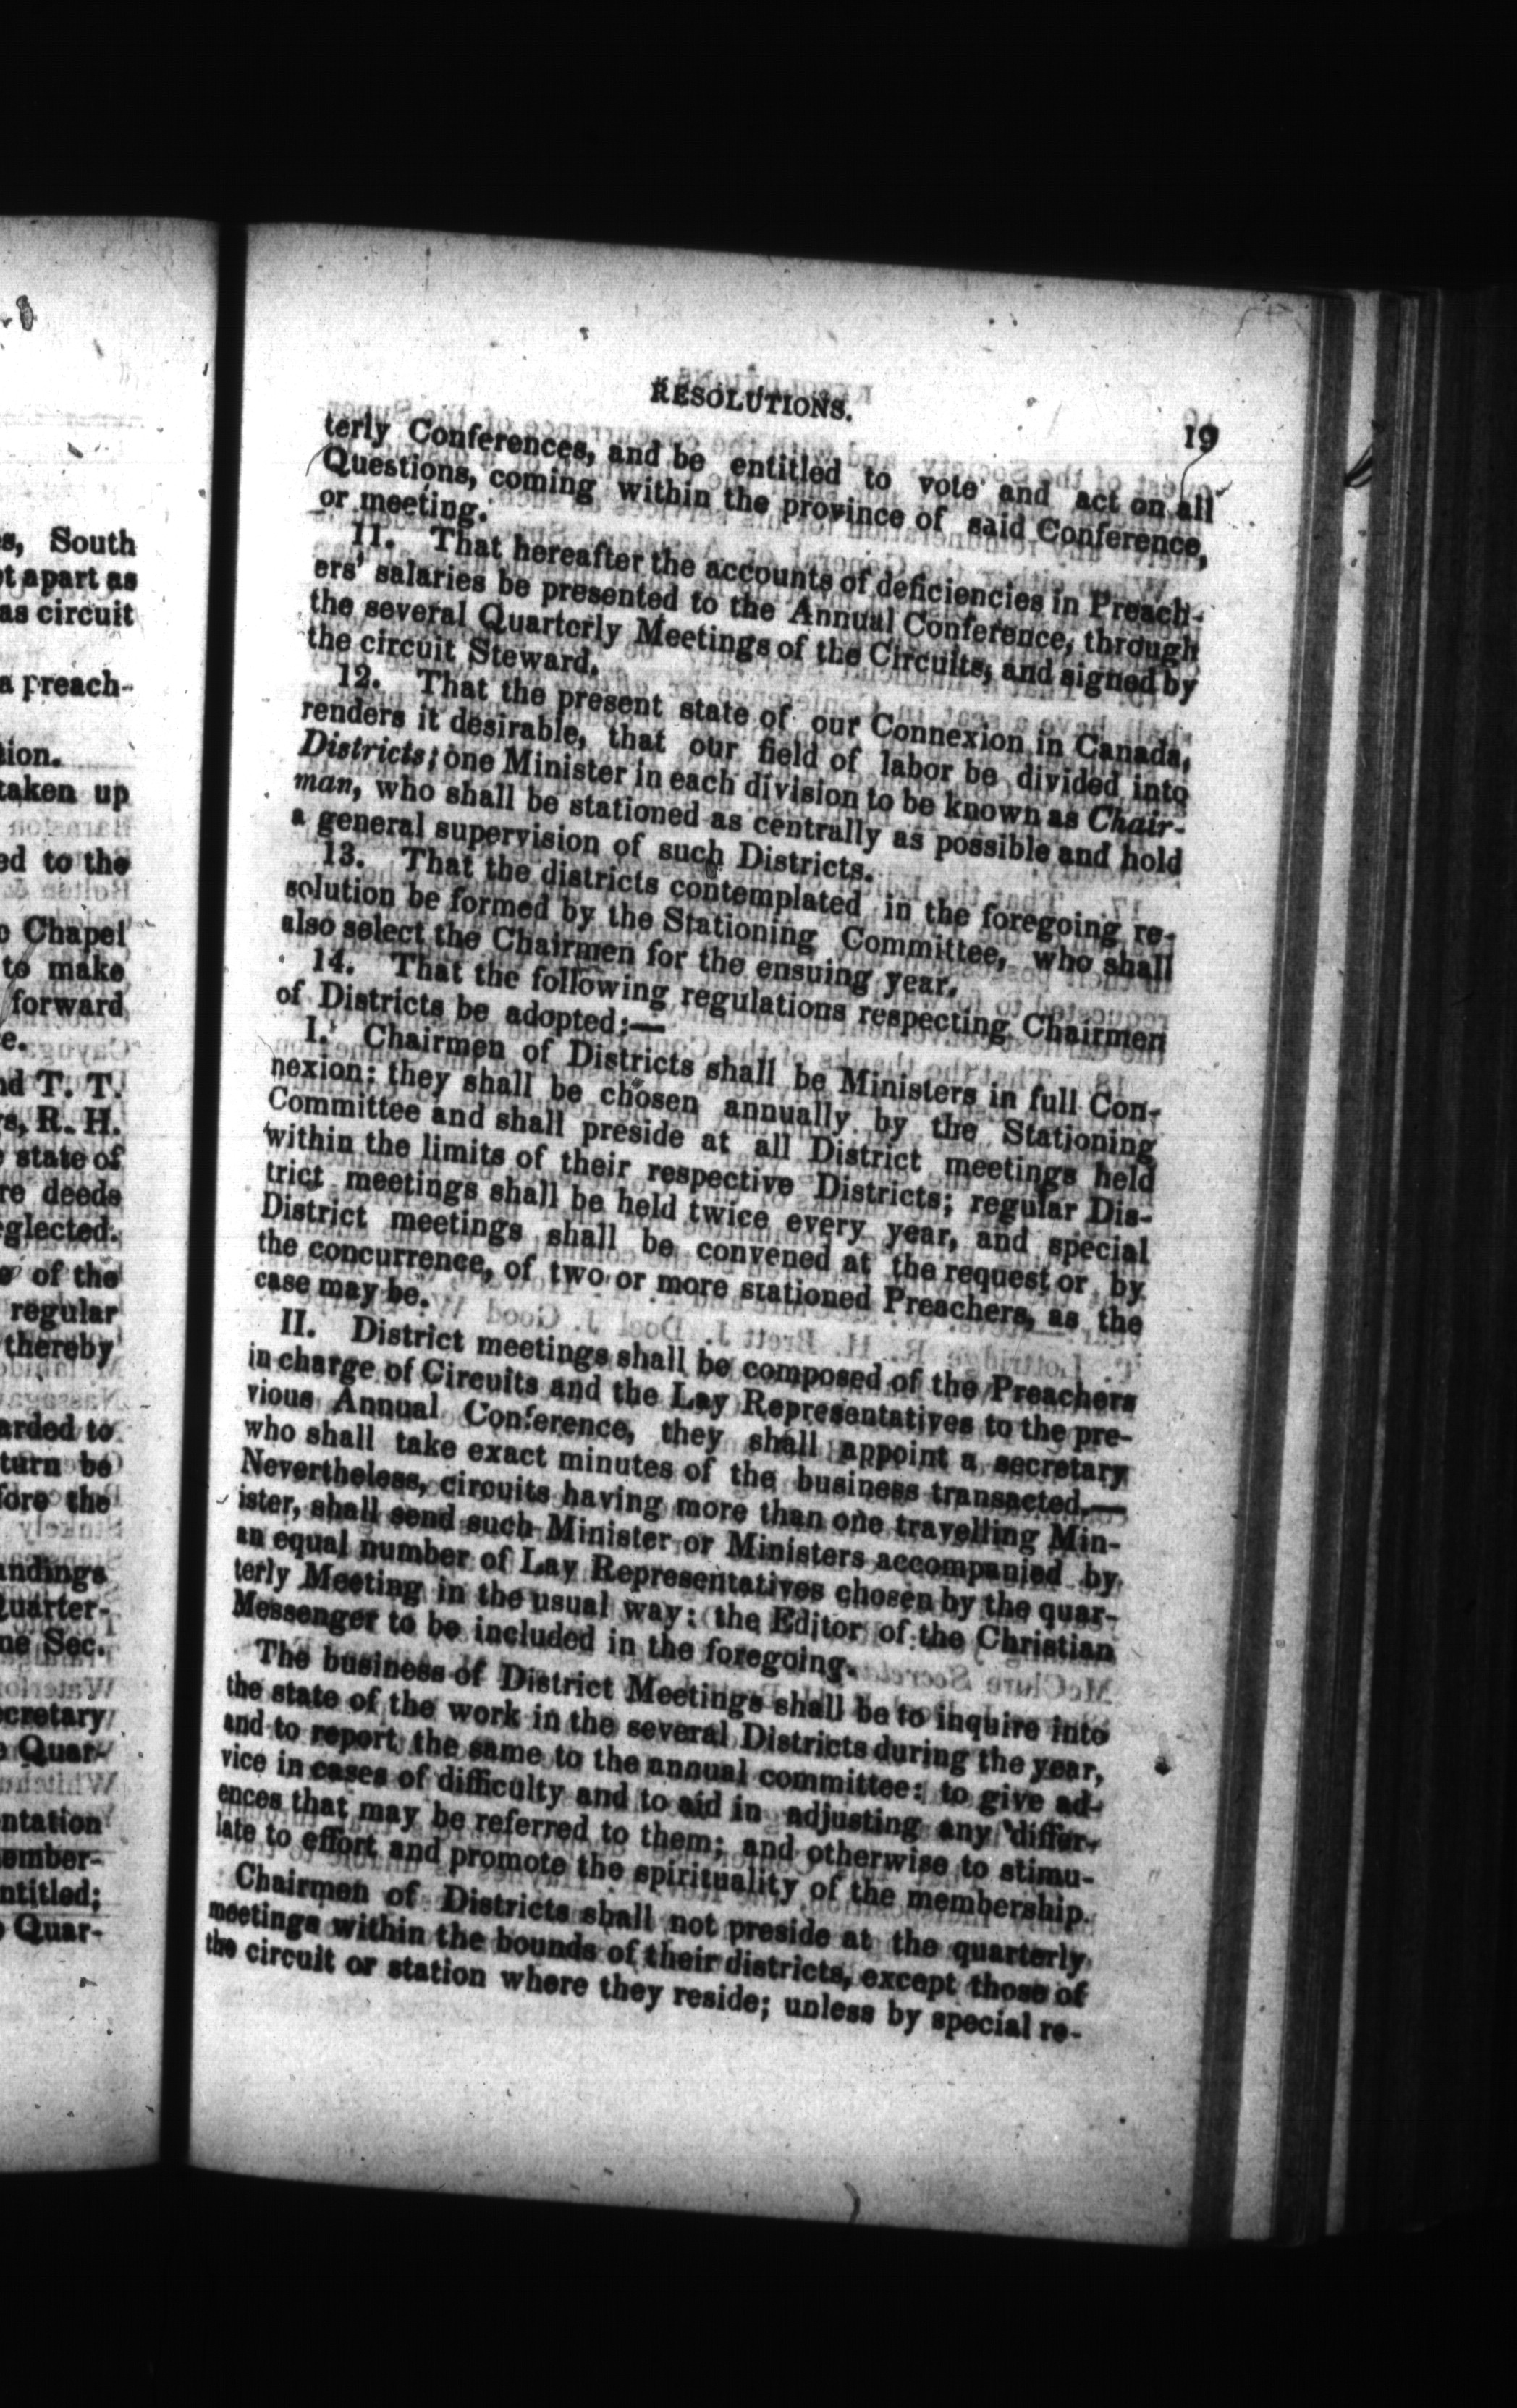 s, South
t apart as
as circuit
a preach-
tion.
taken up
ed to the
o Chapel
to make
forward
e.
nd T. T.
s, R. H.
state of
re deeds
eglected.
of the
regular
thereby
arded to
turn be
fore the
andings
Quarter-
ne Sec.
ecretary
Quar-
entation
ember-
ntitled;
Quar-
RESOLUTIONS.
19
terly Conferences, and be entitled to vote and act on all
Questions, coming within the province of said Conference,
or meeting.
11. That hereafter the accounts of deficiencies in Preach-
ers' salaries be presented to the Annual Conference, through
the several Quarterly Meetings of the Circuits, and signed by
the circuit Steward.
12. That the present state of our Connexion in Canada,
renders it desirable, that our field of labor be divided into
Districts; one Minister in each division to be known as Chair-
man, who shall be stationed as centrally as possible and hold
a general supervision of such Districts.
13. That the districts contemplated in the foregoing re-
solution be formed by the Stationing Committee, who shall
also select the Chairmen for the ensuing year.
14. That the following regulations respecting Chairmen
of Districts be adopted:—
I. Chairmen of Districts shall be Ministers in full Con-
nexion: they shall be chosen annually by the Stationing
Committee and shall preside at all District meetings held
within the limits of their respective Districts; regular Dis-
trict meetings shall be held twice every year, and special
District meetings shall be convened at the request or by
the concurrence, of two or more stationed Preachers, as the
case may be.
II. District meetings shall be composed of the Preachers
in charge of Circuits and the Lay Representatives to the pre-
vious Annual Conference, they shall appoint a secretary
who shall take exact minutes of the business transacted.—
Nevertheless, circuits having more than one travelling Min-
ister, shall send such Minister or Ministers accompanied by
an equal number of Lay Representatives chosen by the quar-
terly Meeting in the usual way: the Editor of the Christian
Messenger to be included in the foregoing.
The business of District Meetings shall be to inquire into
the state of the work in the several Districts during the year,
and to report the same to the annual committee: to give ad-
vice in cases of difficulty and to aid in adjusting any differ-
ences that may be referred to them; and otherwise to stimu-
late to effort and promote the spirituality of the membership.
Chairmen of Districts shall not preside at the quarterly
meetings within the bounds of their districts, except those of
the circuit or station where they reside; unless by special re-